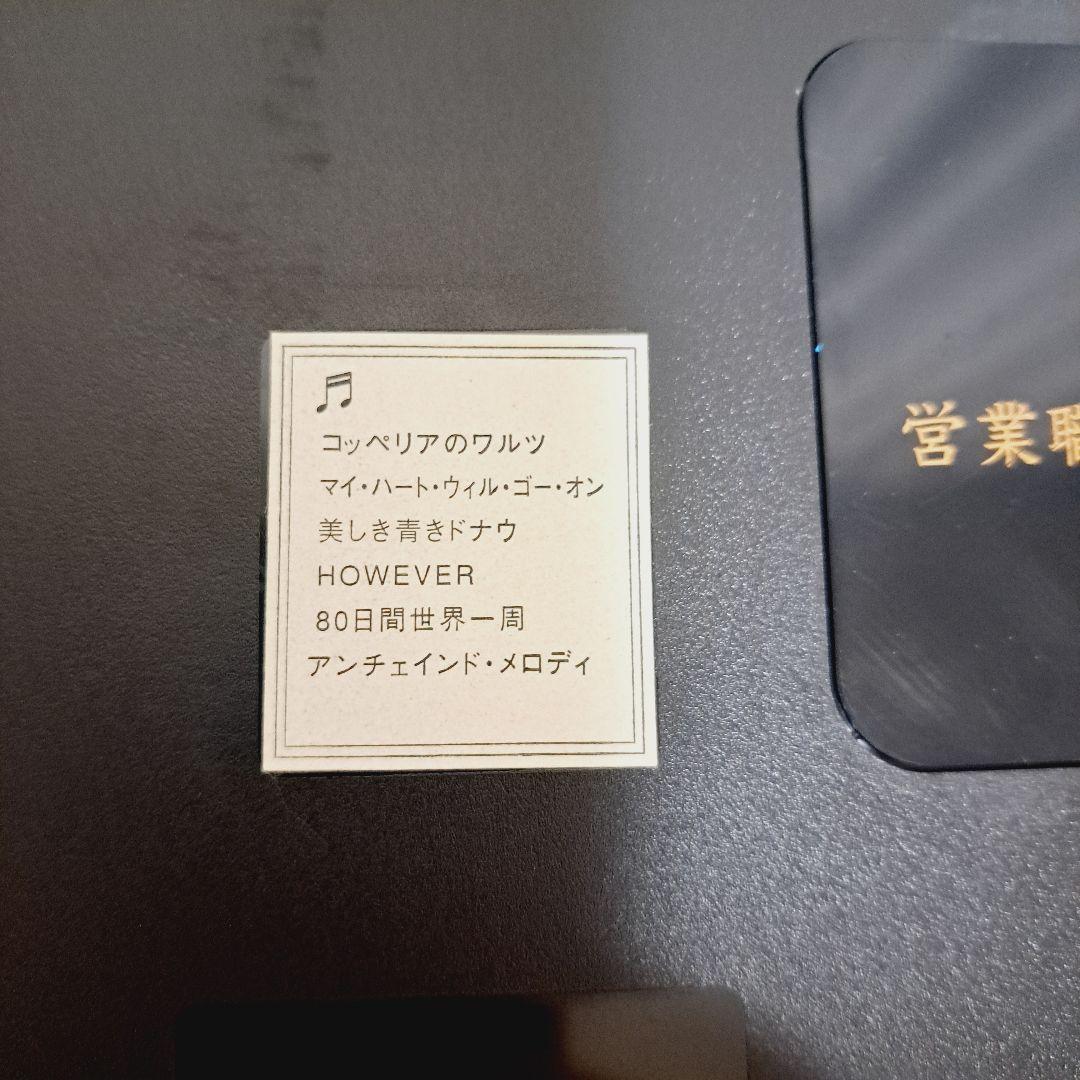 コッペリアのワルツ
マイ・ハート・ウィル・ゴー・オン
美しき青きドナウ
HOWEVER
80日間世界一周
アンチェインド・メロディ
営業職